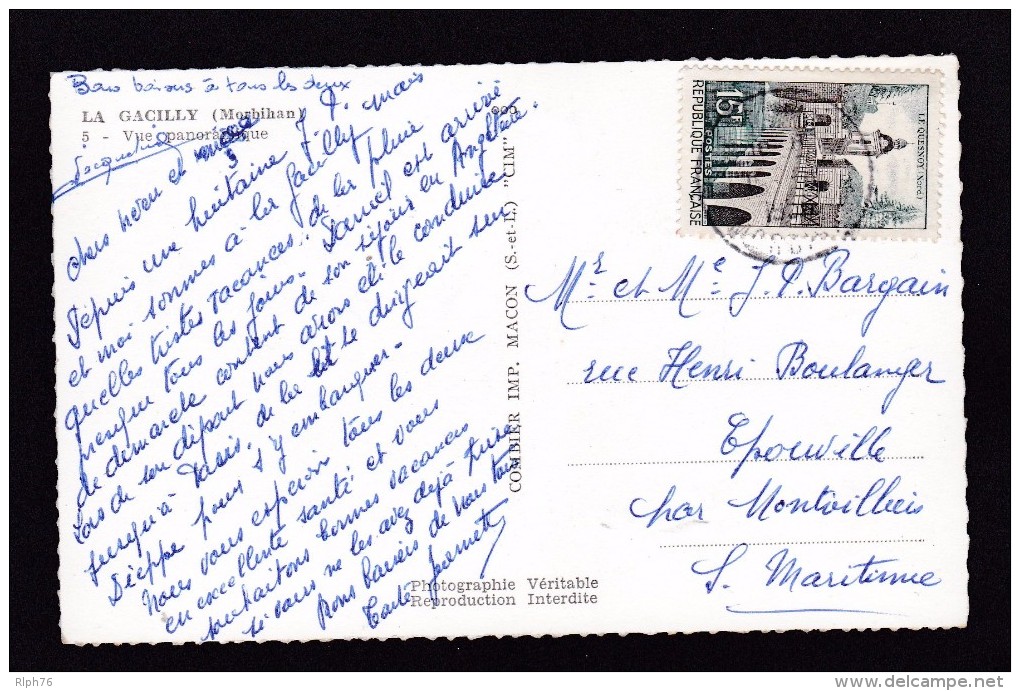 Bons baisers à tous les deux
LA GACILLY (Morbihan)
5 - Vue panoramique
Jacqueline
Chers
Depuis une huitaine J. P. mais
et moi sommes à la Gacilly
quelles tristes vacances. de la pluie
presque tous les jours. Daniel est arrivé
de démarche content de son séjour en Angleterre.
Lors de son départ nous avons été le conduire
jusqu'à Paris. de là il se dirigeait sur
Dieppe pour s'y embarquer.
Nous vous espérons tous les deux
en excellente santé et vous
souhaitons bonnes vacances
si vous ne les avez déjà
Bons baisers de nous tous
COMBIER IMP. MACON (S.-et-L.) "CIM"
Photographie Véritable
Reproduction Interdite
15F
POSTES
REPUBLIQUE FRANÇAISE
LE QUESNOY (Nord)
Mr et Me J. P. Bargain
rue Henri Boulanger
Epouville
par Montvilliers
S. Maritime
Rlph76
www.delcampe.net